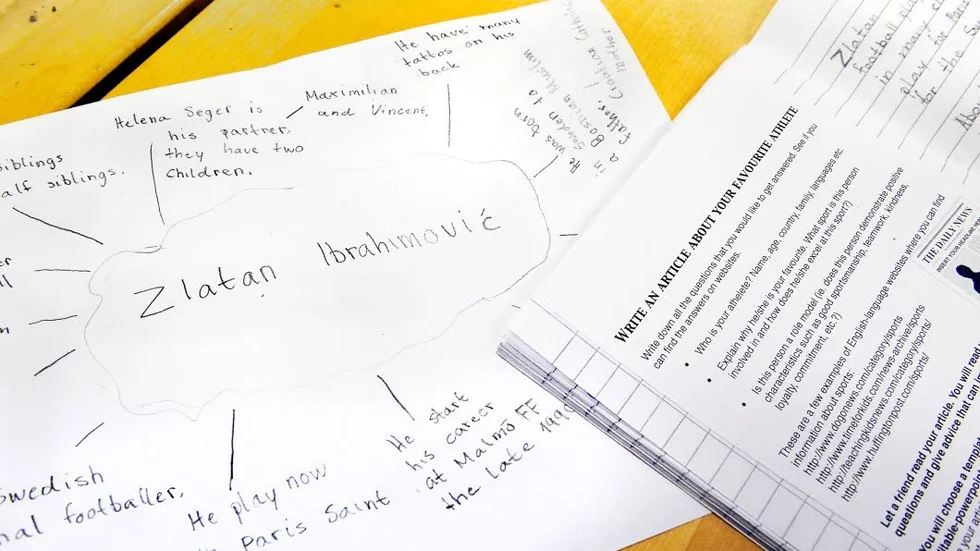 He have many
tattos on his
back
Helena Seger is
his partner.
they have two
Children.
Maximilian
and Vincent.
He was born
in Sweden to
a Bosnian Muslim
father, Croatian Catholic
mother
siblings
alf siblings.
Zlatan Ibrahimović
Swedish
nal footballer.
He play now
Paris Saint
He start
his career
at Malmö FF
the late 199
Zlatan
football
in many
play for Paris
for the
WRITE AN ARTICLE ABOUT YOUR FAVOURITE ATHLETE
Write down all the questions that you would like to get answered. See if you
can find the answers on websites.
• Who is your athlete? Name, age, country, family, languages etc.
• Explain why he/she is your favourite. What sport is this person
involved in and how does he/she excel at this sport?)
• Is this person a role model (ie. does this person demonstrate positive
characteristics such as good sportsmanship, teamwork, kindness,
loyalty, commitment, etc.?)
These are a few examples of English-language websites where you can find
information about sports:
http://www.dogonews.com/category/sports
http://www.timeforkids.com/news-archive/sports
http://teachingkidsnews.com/category/sports/
http://www.huffingtonpost.com/sports/
THE DAILY NEWS
INSERT YOUR HEADLINE
Let a friend read your article. You will read
questions and give advice that can
You will choose a templa